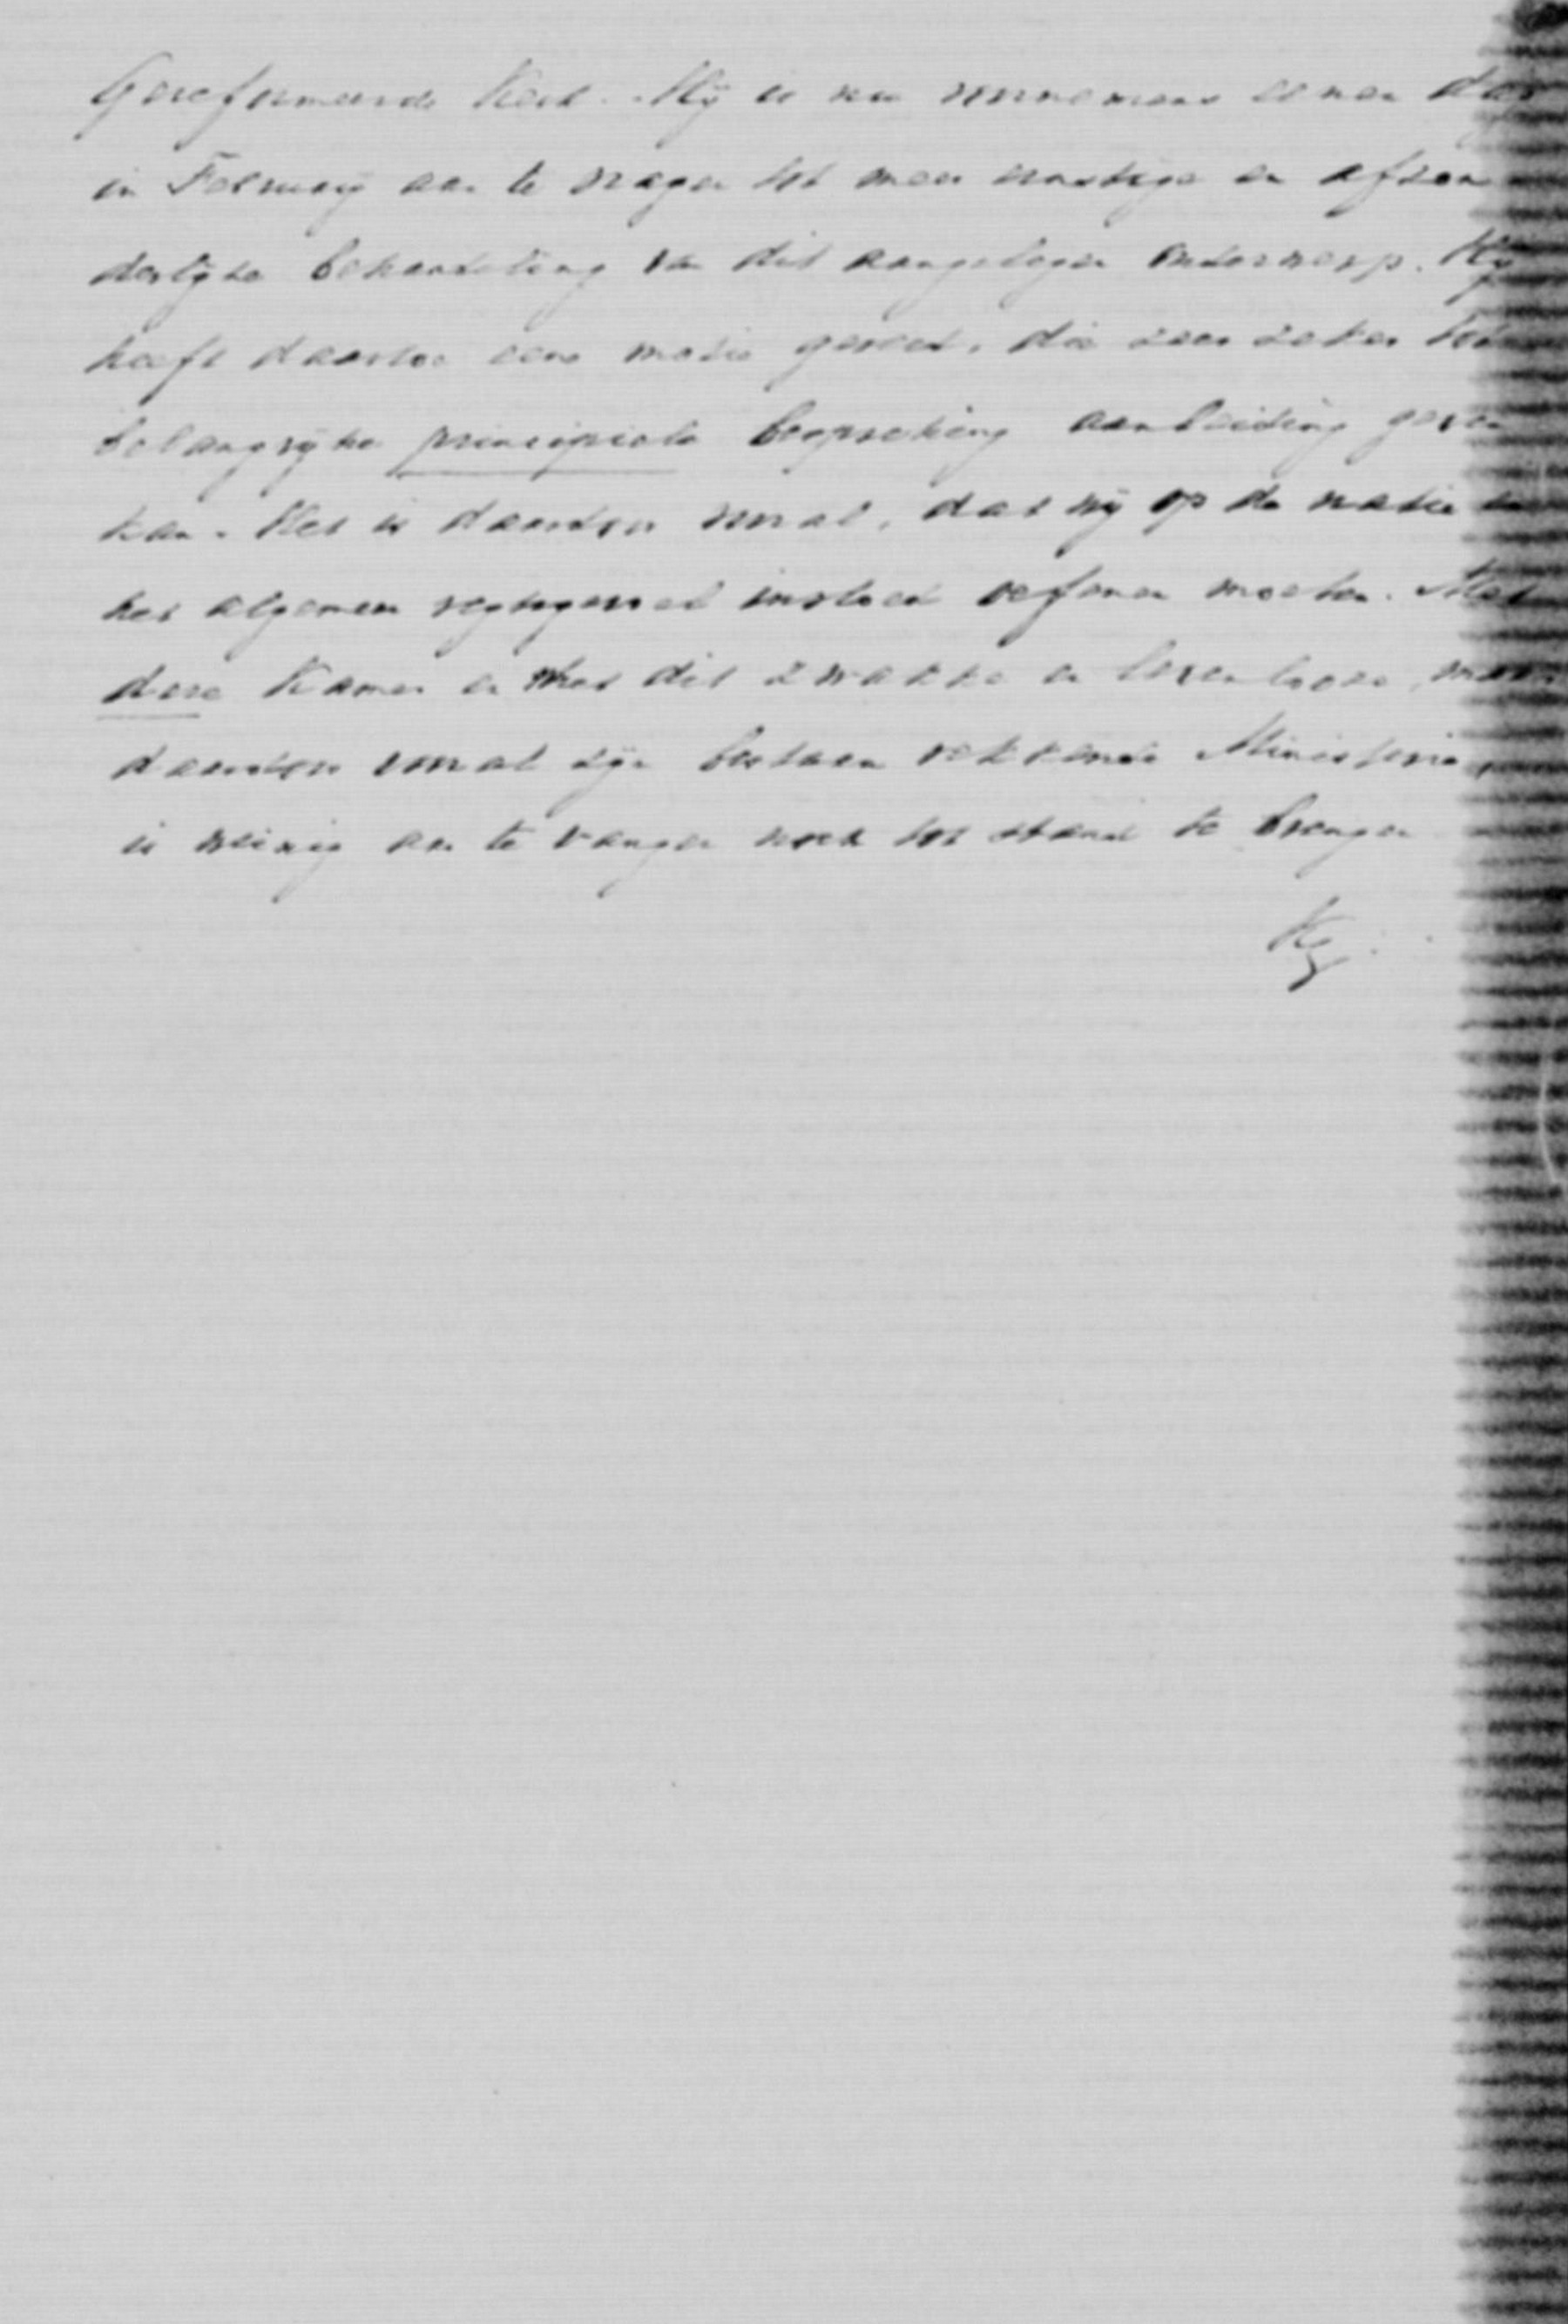 Gereformeerde Kerk. Hij is nu voornemens eenen dag
in Februarij aan te vragen tot meer ernstige en afzon
derlijke behandeling van dit aangelegen onderwerp. Hij
heeft daartoe eene motie gereed, die zeer zeker tot
belangrijke principieele bespreking aanleiding geven
kan. Het is daardoor vooral, dat wij op de natie en
het algemeen regtsgevoel invloed oefenen moeten. Met
deze Kamer en met dit zwakke en levenlooze, maar
daardoor vooral zijn bestaan rekkende Ministerie,
is weinig aan te vangen noch tot stand te brengen